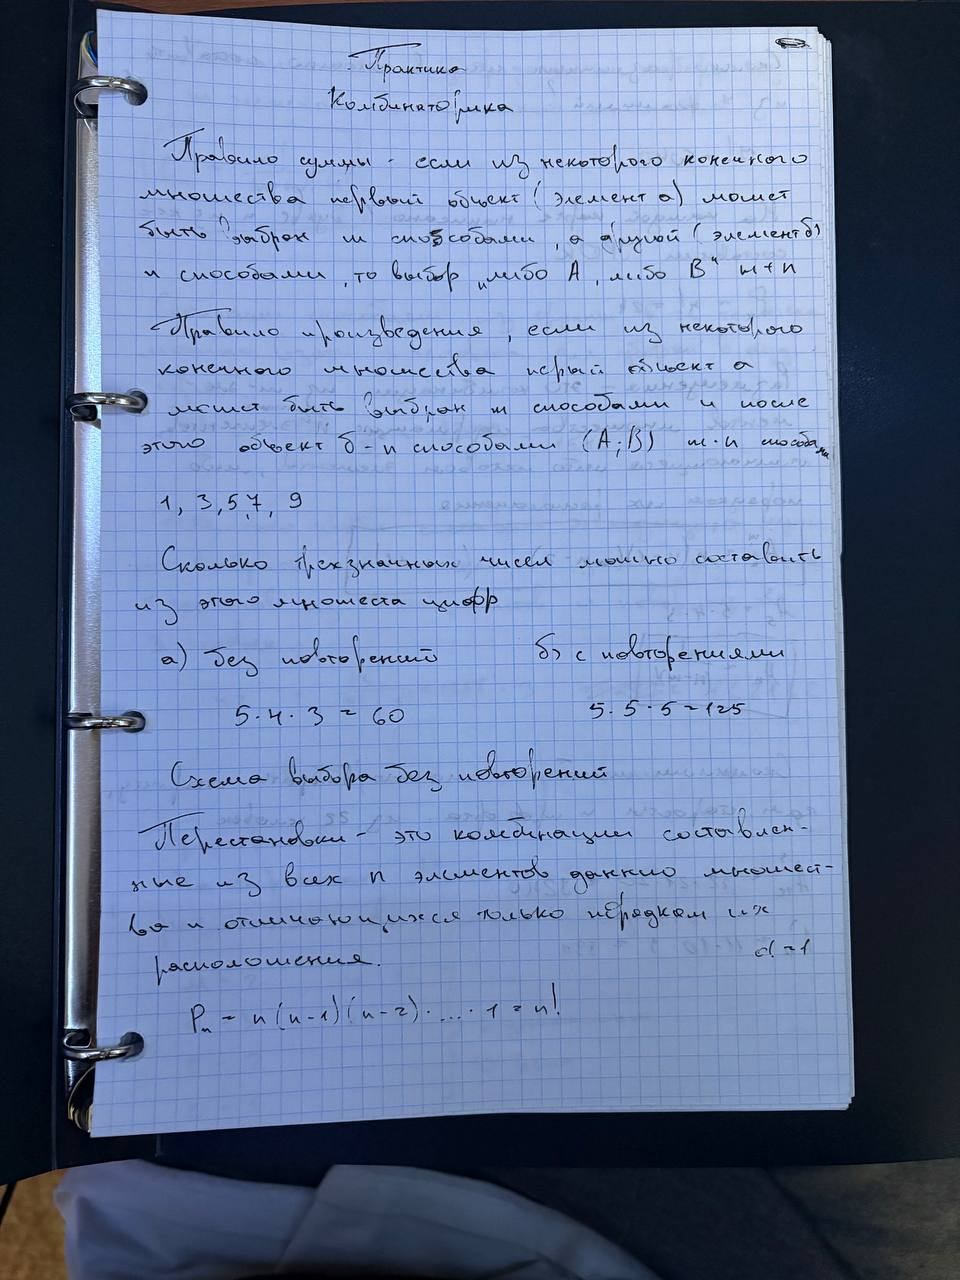 Практика
Комбинаторика
Правило суммы - если из некоторого конечного
множества первый объект (элемент а) может
быть выбран m способами, а другой (элемент б)
n способами, то выбор "либо А, либо В" m+n
Правило произведения, если из некоторого
конечного множества перый объект а
может быть выбран m способами и после
этого объект б - n способами (А;В) m·n способами
1, 3, 5, 7, 9
Сколько трехзначных чисел можно составить
из этого множеста цифр
а) без повторений б) с повторениями
5·4·3 = 60 5·5·5 = 125
Схема выбора без повторений
Перестановки - это комбинации составлен-
ные из всех n элементов данно множест-
ва и отличающихся только порядком их
расположения.
0! = 1
Pn = n(n-1)(n-2)·...·1 = n!